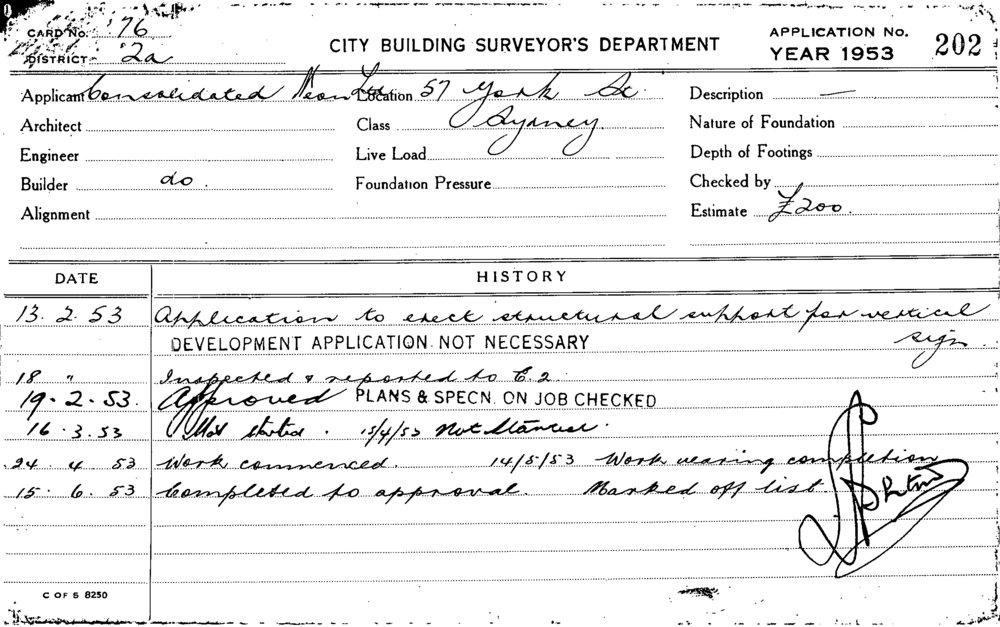 CARD No. 76
DISTRICT 2a
CITY BUILDING SURVEYOR'S DEPARTMENT
APPLICATION No.
YEAR 1953
202
Applicant Consolidated Neon Ltd Location 57 York St. Description —
Architect Class Sydney Nature of Foundation
Engineer Live Load Depth of Footings
Builder do. Foundation Pressure Checked by
Alignment Estimate £200.
DATE HISTORY
13. 2. 53 Application to erect structural support for vertical
sign.
DEVELOPMENT APPLICATION NOT NECESSARY
18 " Inspected & reported to C.2.
19. 2. 53. Approved PLANS & SPECN. ON JOB CHECKED
16. 3. 53 Not started. 15/4/53 Not Started.
24. 4. 53 Work commenced. 14/5/53 Work nearing completion
15. 6. 53 Completed to approval. Marked off list
C OF S 8250